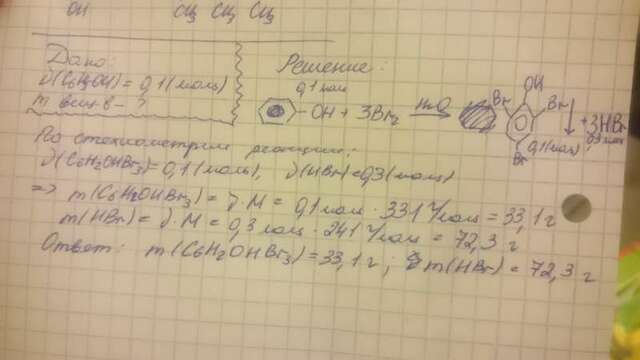 OH CH₃ CH₃ CH₃
Дано:
ν(C₆H₅OH) = 0,1 (моль)
m вещ-в - ?
Решение:
0,1 моль
-OH + 3Br₂ → H₂O
OH
Br Br
Br
↓ + 3HBr
0,1 (моль) 0,3 моль
По стехиометрии реакции:
ν(C₆H₂OHBr₃) = 0,1 (моль), ν(HBr) = 0,3 (моль)
=> m(C₆H₂OHBr₃) = ν·M = 0,1 моль · 331 г/моль = 33,1 г
m(HBr) = ν·M = 0,3 моль · 241 г/моль = 72,3 г
Ответ: m(C₆H₂OHBr₃) = 33,1 г; m(HBr) = 72,3 г